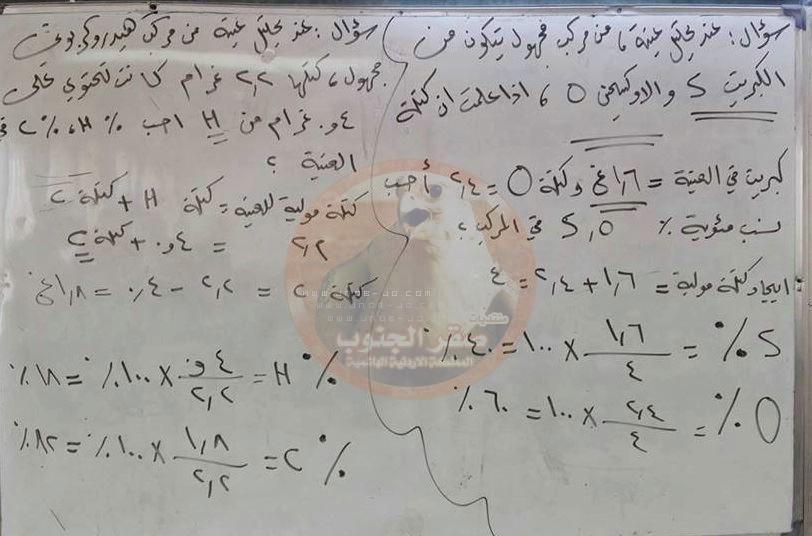 سؤال: عند تحليل عينة ما من مركب مجهول يتكون من
الكبريت S والاوكسجين O ، اذا علمت ان كتلة
كبريت في العينة = ١,٦ غ وكتلة O = ٢,٤ أحسب
نسب مئوية % S,O في المركب؟
ايجاد كتلة مولية = ١,٦ + ٢,٤ = ٤
%S = ١,٦/٤ × ١٠٠ = ٤٠%
%O = ٢,٤/٤ × ١٠٠ = ٦٠%
سؤال: عند تحليل عينة من مركب هيدروكربوني
مجهول ، كتلتها ٢,٢ غرام كانت تحتوي على
٠,٤ غرام من H احسب %H ، %C في
العينة ؟
كتلة مولية للعينة = كتلة H + كتلة C
٢,٢ = ٠,٤ + كتلة C
كتلة C = ٢,٢ - ٠,٤ = ١,٨ غ
%H = ٠,٤/٢,٢ × ١٠٠% = ١٨%
%C = ١,٨/٢,٢ × ١٠٠% = ٨٢%
منتديات
صقر الجنوب
المملكة الاردنية الهاشمية
www.unge-jo.com